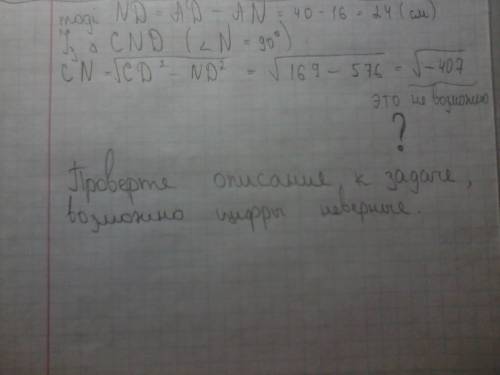 тоді ND = AD - AN = 40 - 16 = 24 (см)
Із Δ CND (∠N = 90°)
CN = √CD² - ND² = √169 - 576 = √-407
это не возможно
?
Проверте описание к задаче,
возможно цифры неверные.